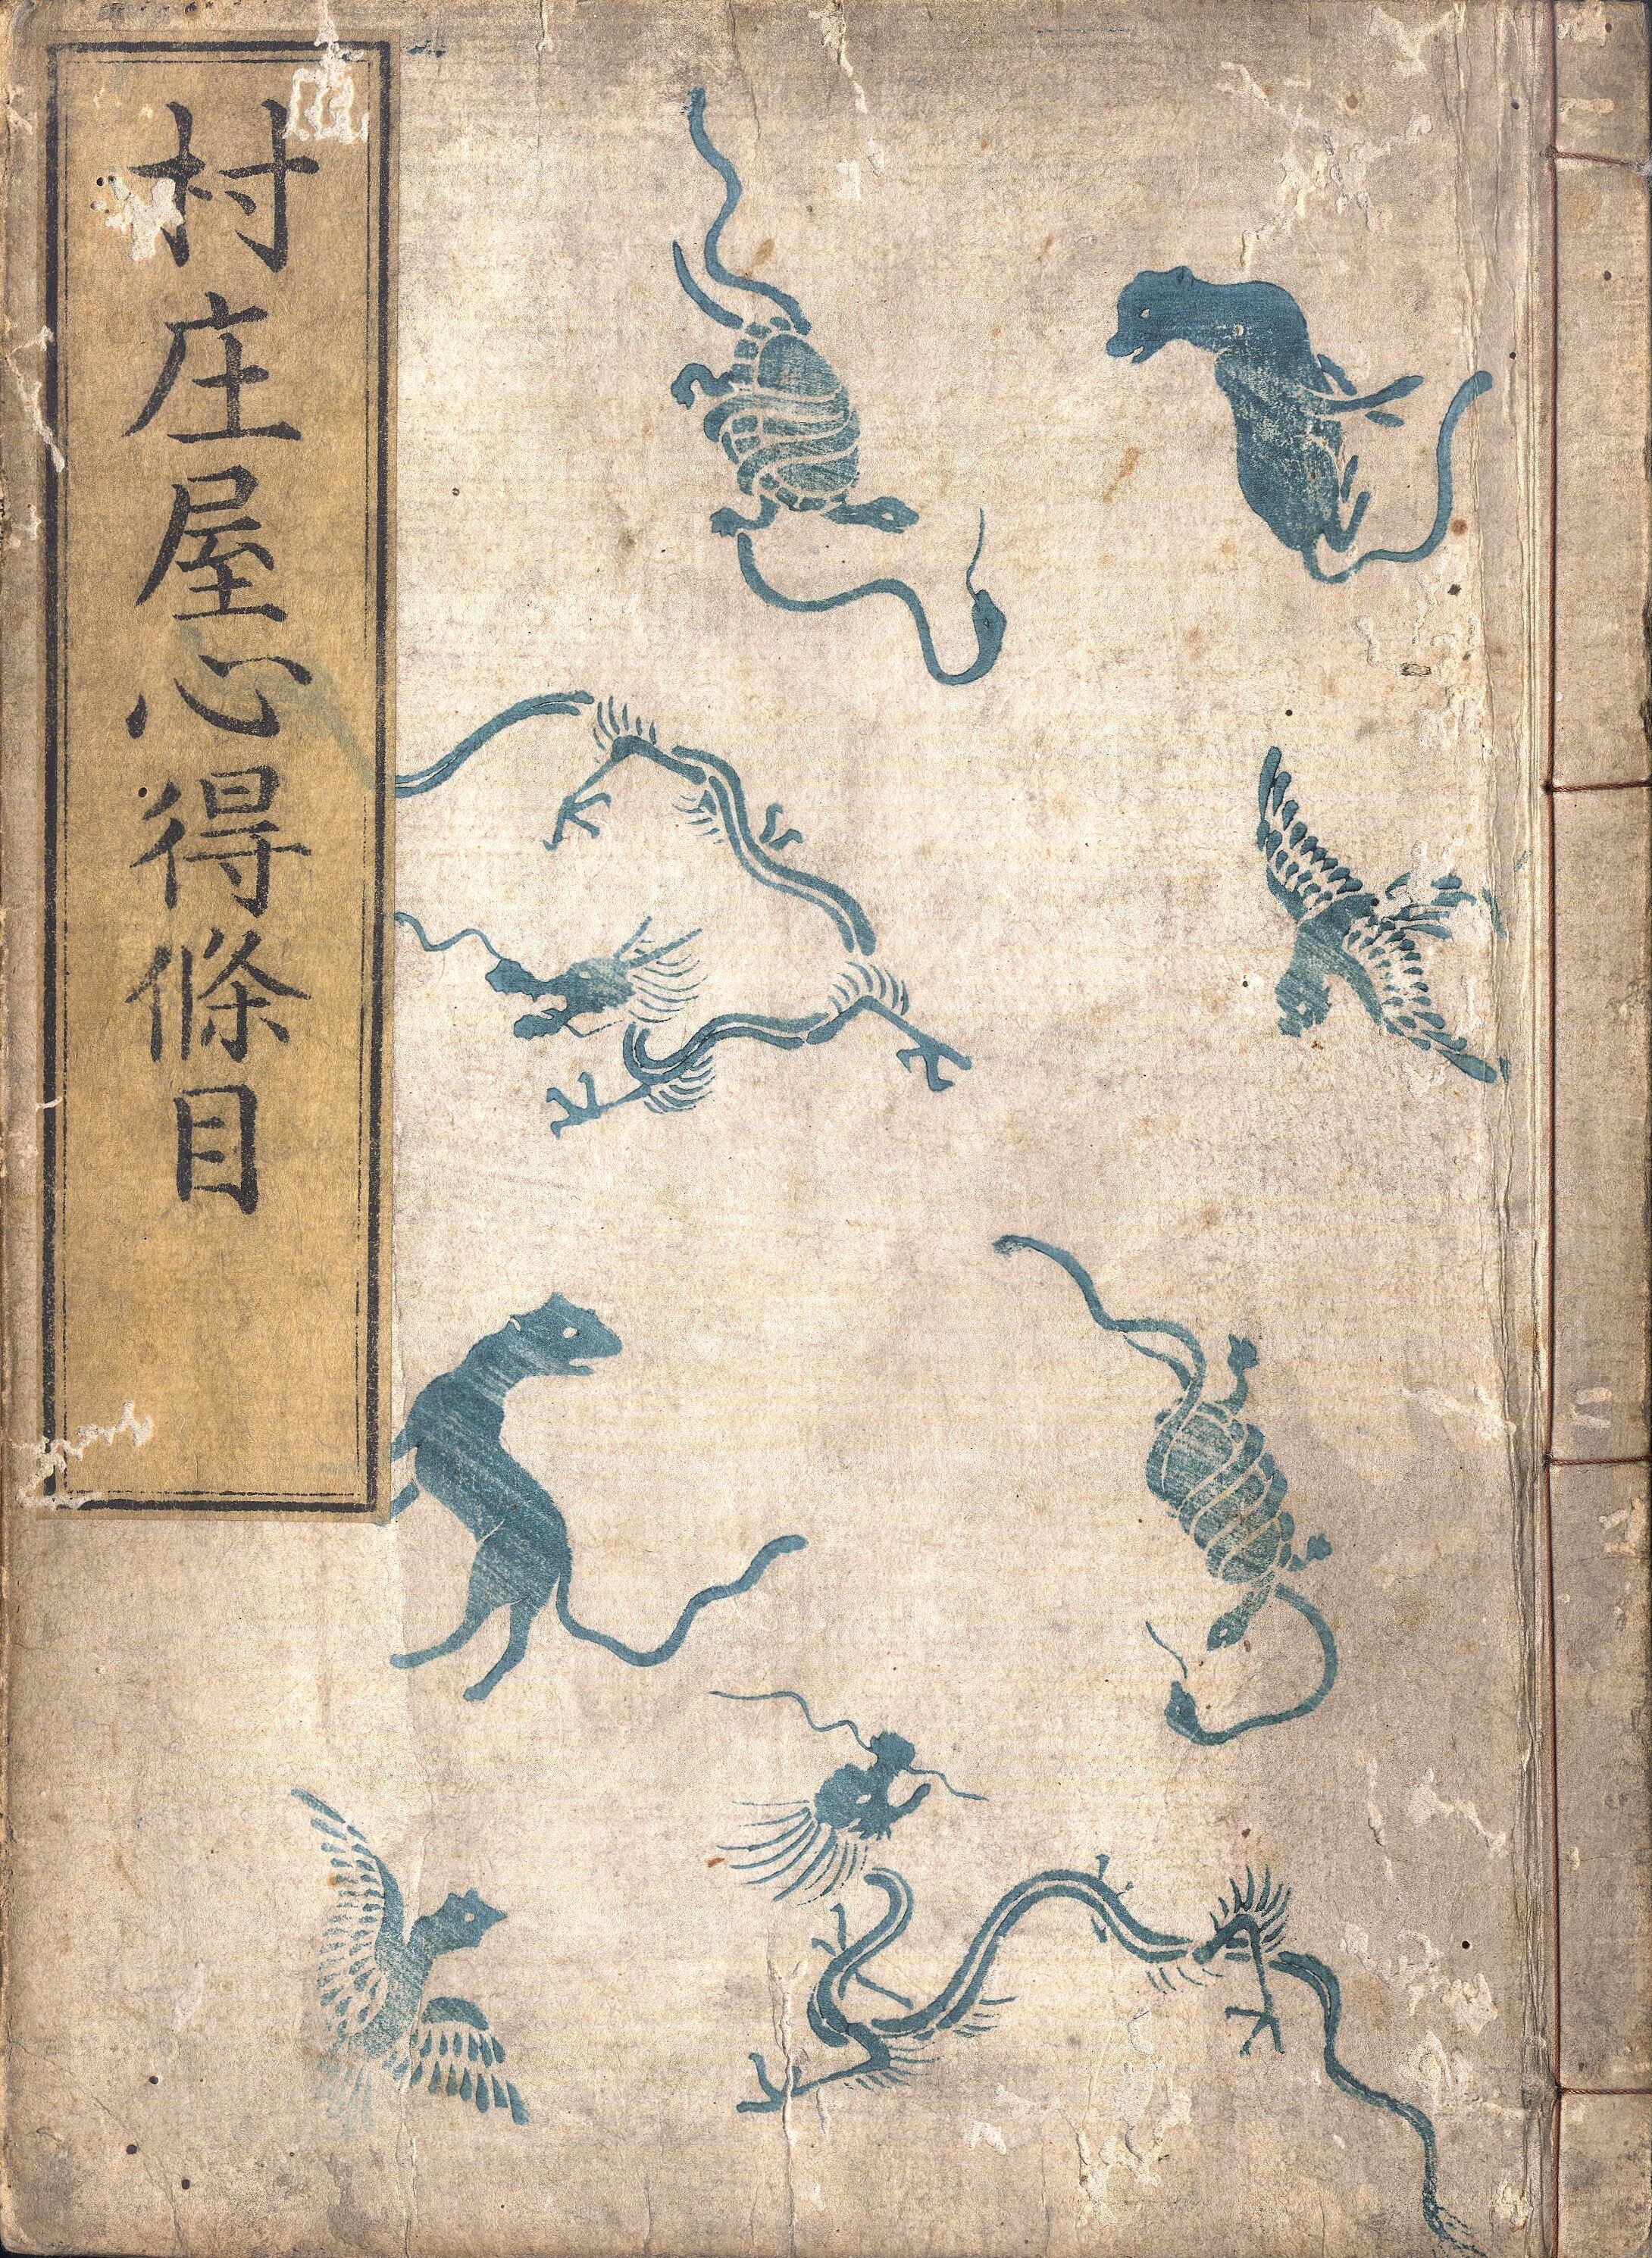 村庄屋心得條目